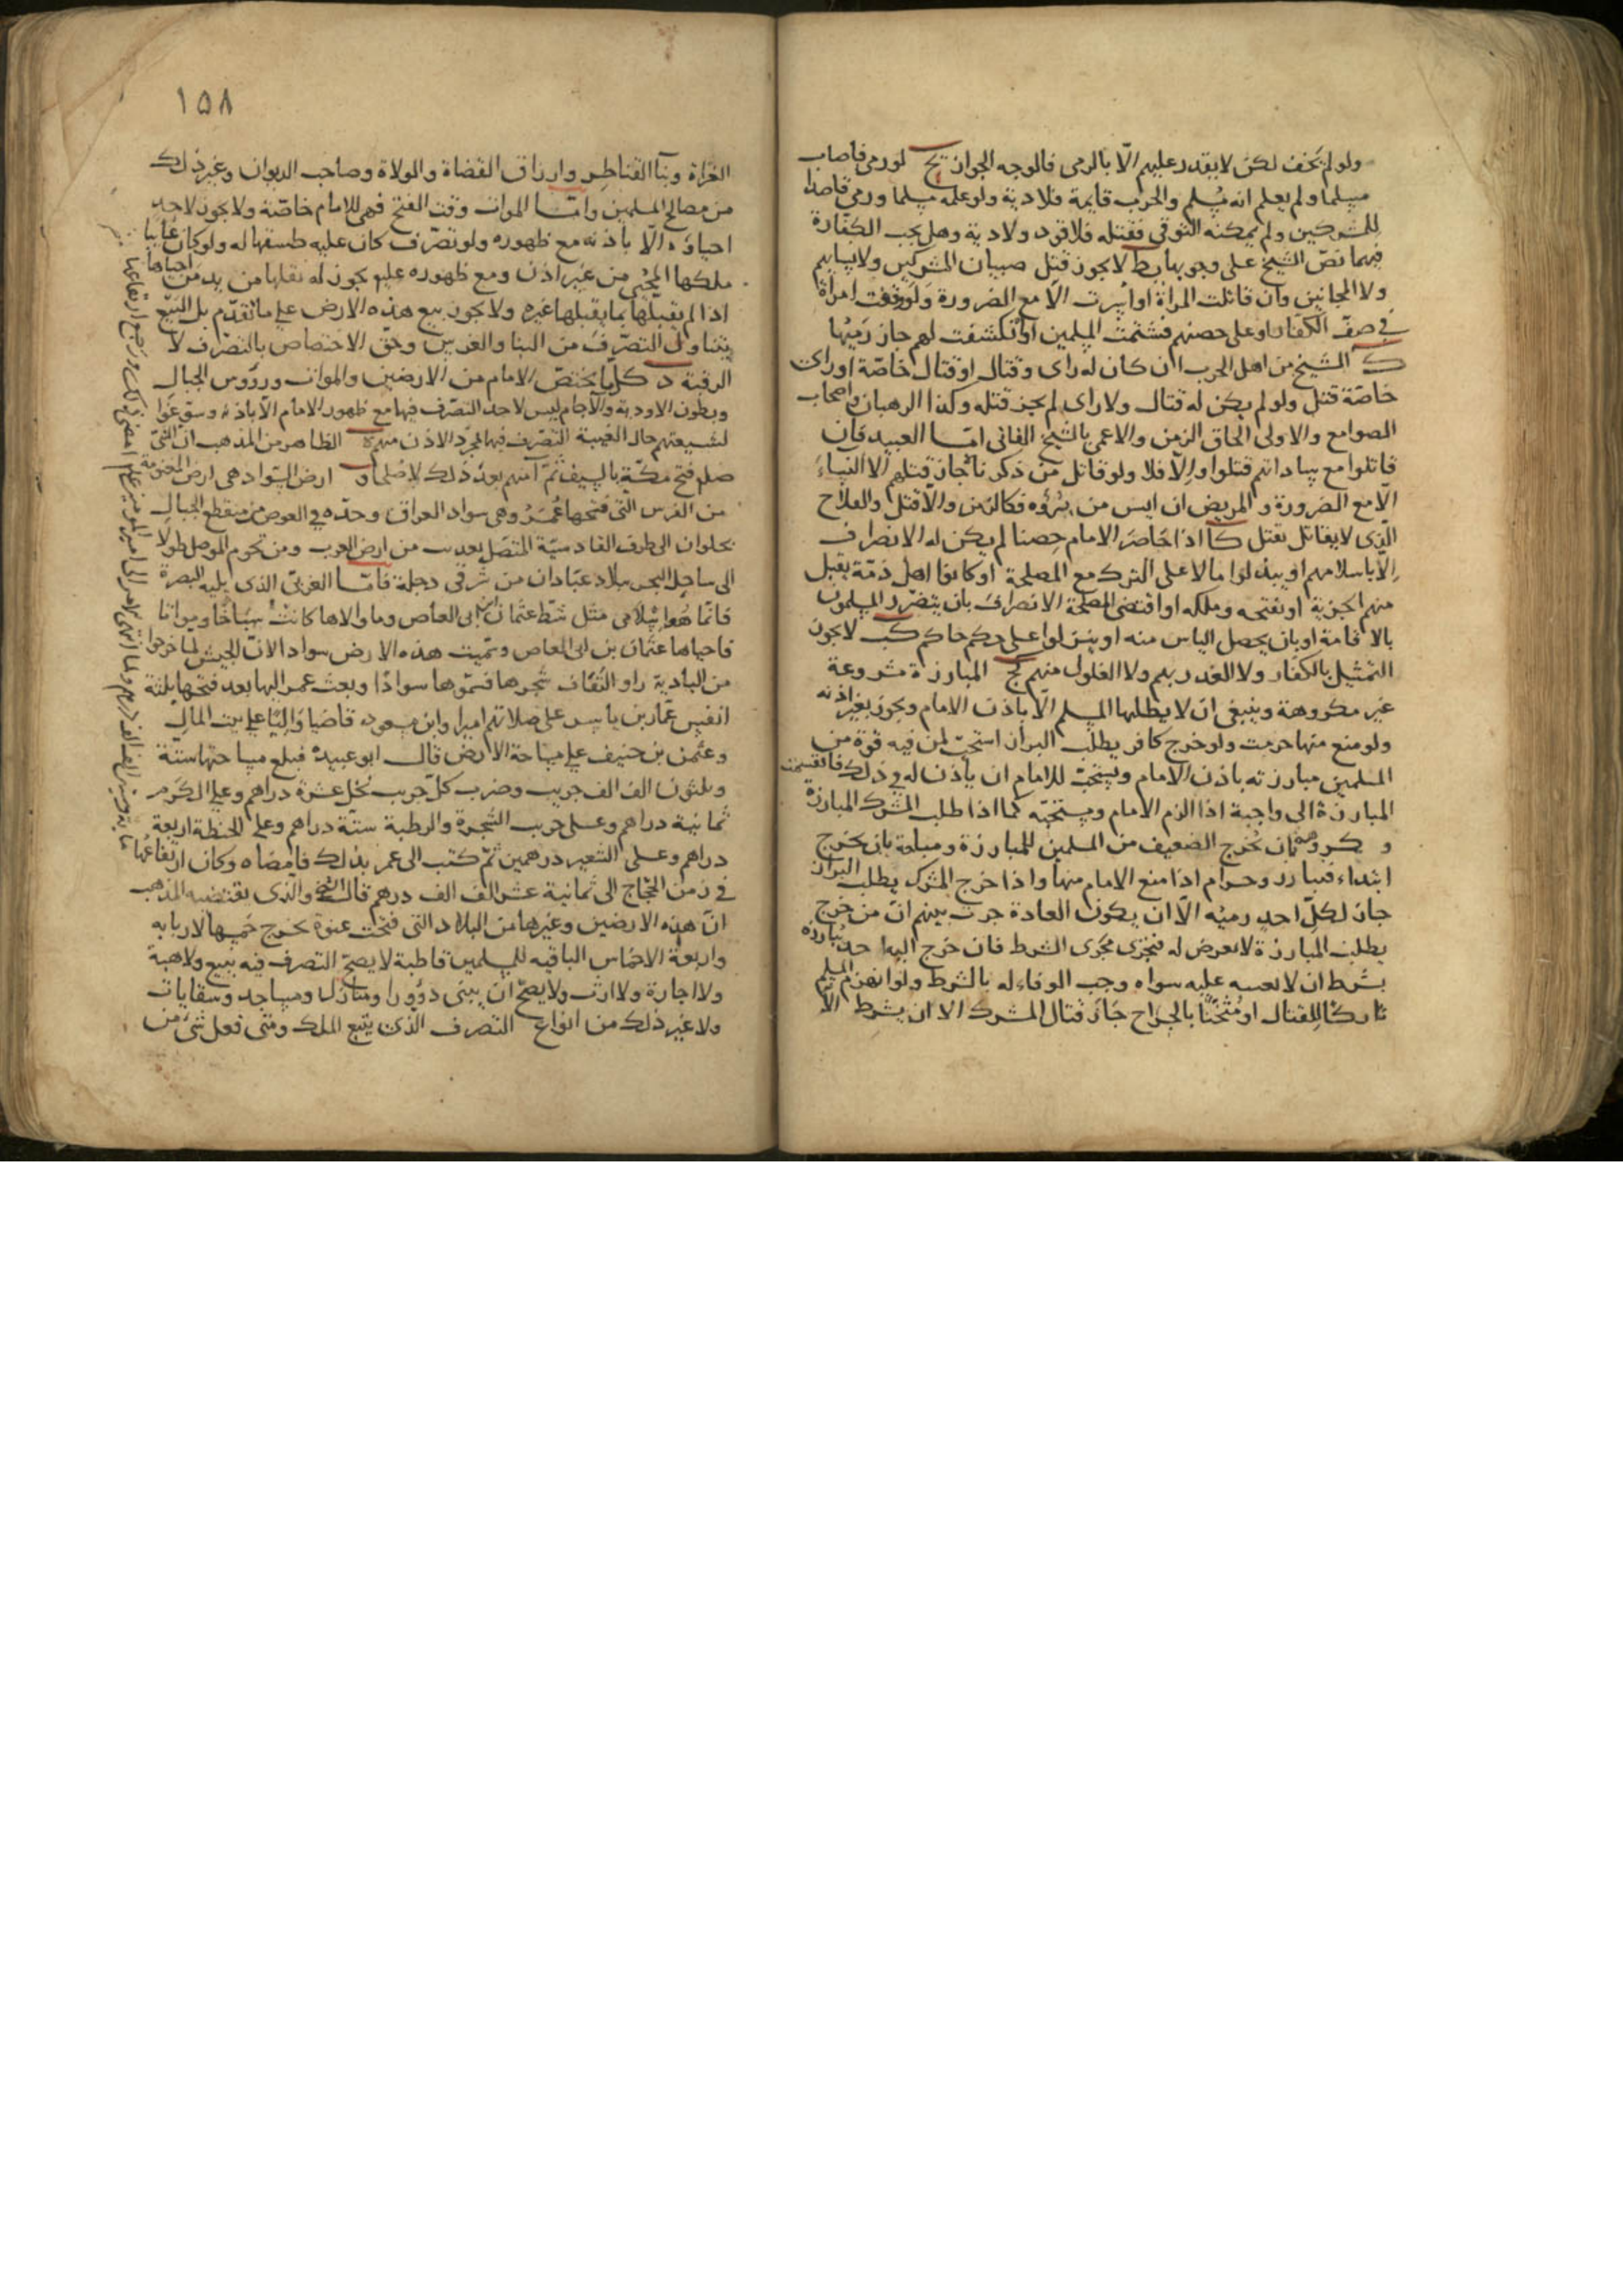 ولو لم نخف لكن لا يقدر عليهم الّا بالرمى فالوجه الجواز يح لو رمى فاصاب
مسلما ولم يعلم انه مُسلم والحرب قايمة فلا دية ولو علمه مسلما ورمى قاصدا
للمشركين ولم يمكنه التوقى فقتله فلا قود ولا دية وهل يجب الكفّارة
فيهما نصّ الشيخ على وجوبها يط لا يجوز قتل صبيان المشركين ولا نسايهم
ولا المجانين وان قاتلت المراة او اُسِرت الّا مع الضرورة ولو وقفت امراة
فى صفّ الكفّار او على حصنهم فشتمت المسلمين او تكشفت لهم جاز رَميُها
ك الشيخ من اهل الحرب ان كان له راى وقتال او قتال خاصّة او راى
خاصّة قتل ولو لم يكن له قتال ولا راى لم يجز قتله وكذا الرهبان واصحاب
الصوامع والاولى الحاق الزمن والاعمى بالشيخ الفانى امّا العبيد فان
قاتلوا مع ساداتهم قتلوا والّا فلا ولو قاتل من ذكرنا جاز قتلهم الّا النساءَ
الّا مع الضرورة والمريض ان ايس من بُرؤه فكالزمن والّا قتل والفلاح
الّذى لا يقاتل يقتل كا اذا حَاصَرَ الامام حِصنا لم يكن له الانصراف
الّا باسلامهم او يبذلوا مالا على الترك مع المصلحة او كانوا اهل ذمّة يقبل
منهم الجزية او يفتحه ويملكه او اقتضى المصلحة الانصراف بان يتضرّر المسلمون
بالاقامة او بان يحصل الياس منه او ينزلوا على حكم حاكم كب لا يجوز
التمثيل بالكفّار ولا الغدر بهم ولا الغلول منهم كج المبارزة مشروعة
غير مكروهة وينبغى ان لا يطلبها المسلم الّا باذن الامام ويجوز بغير اذنه
ولو منع منها حرمت ولو خرج كافر يطلب البراز استحبّ لمن فيه قوة من
المسلمين مبارزته باذن الامام ويستحبّ للامام ان ياذن له فى ذلك فانقسمت
المبارزة الى واجبة اذا الزم الامام ومستحبّه كما اذا طلب المشرك المبارزة
ومكروهة بان يخرج الضعيف من المسلمين للمبارزة ومباحة بان يخرج
ابتداء فيبارز وحرام اذا منع الامام منها واذا خرج المشرك يطلب البراز
جاز لكلّ احد رميُه الّا ان يكون العادة جرت بينهم انّ من خرج
يطلب المبارزة لا يعرض له فيجرى مجرى الشرط فان خرج اليه احد يُبارزه
بشرط ان لا يعينه عليه سواه وجب الوفاء له بالشرط ولو انهزم المسلم
تاركًا للقتال او مُثخنًا بالجراح جاز قتال المشرك الّا ان يشرط الّا
١٥٨
الغزاة وبنآ القناطِر وارزاق القضاة والولاة وصاحب الديوان وغير ذلك
من مصالح المسلمين وامّا الموات وقت الفتح فهى للامام خاصّة ولا يجوز لاحد
احياؤه الّا باذنه مع ظهوره ولو تصرّف كان عليه طسقها له ولو كان غايبا
ملكها المُحيى من غير اذن ومع ظهوره عليه يجوز له نقلها من يد من احياها
اذا لم يقبلها بما يقبلها غيره ولا يجوز بيع هذه الارض على ما تقدّم بل البَيع
يتناول التصرّف من البنا والغرس وحقّ الاختصاص بالتصرّف لا
الرقبة د كلّما يختصّ الامام من الارضين والموات ورؤوس الجبال
وبطون الاودية والآجام ليس لاحد التصرّف فيها مع ظهور الامام الّا باذنه وسوّغوا
لشيعتهم حال الغيبة التصرّف فيها بمجرّد الاذن منهم ه الظاهر من المذهب انّ النبى
صلم فتح مكّة بالسيف ثمّ آمنهم بعد ذلك لا صُلحا و ارض السواد هى ارض المغنومة
من الفرس التى فتحها عُمَرُ وهى سواد العراق وحدّه فى العرض من منقطع الجبال
بحلوان الى طرف القادسيّة المتصل بعذيب من ارض العرب ومن تخوم الموصل طولا
الى ساحل البحر ببلاد عبّادان من شرقى دجلة فامّا الغربى الذى يليه البصرة
فانّما هُو اسلامى مثل شطّ عثمان بن ابى العاص وما والاها كانت سِبَاخًا ومواتا
فاحياها عثمان بن ابى العاص وسمّيت هذه الارض سوادا لانّ الجيش لما خرجوا
من البادية راو التُفاف شجرها فسمّوها سوادًا وبعث عمر اليها بعد فتحها ثلثة
انفس عمّار بن ياسر على صلاتهم اميرا وابن مسعود قاضيا وَاليًا على بيت المال
وعثمن بن حنيف على مساحة الارض قال ابو عبيدة فبلغ مساحتها ستة
وثلثون الف الف جريب وضرب كلّ جريب نخل عشرة دراهم وعلى الكرم
ثمانية دراهم وعلى جريب الشجرة والرطبة ستّة دراهم وعلى الحنطة اربعة
دراهم وعلى الشعير درهمين ثمّ كتب الى عمر بذلك فامضاه وكان ارتفاعُها
فى زمن الحجّاج الى ثمانية عشر الف الف درهم قال الشيخ والّذى يقتضيه المذهب
انّ هذه الارضين وغيرها من البلاد التى فتحت عنوة يخرج خمسها لاربابه
واربعة الاخماس الباقيه للمسلمين قاطبة لا يصحّ التصرف فيه ببيع ولا هبة
ولا اجارة ولا ارث ولا يصحّ ان يبنى دؤورا ومنازل ومساجد وسقايات
ولا غير ذلك من انواع التصرف الّذى يتبع الملك ومتى فعل شئ من